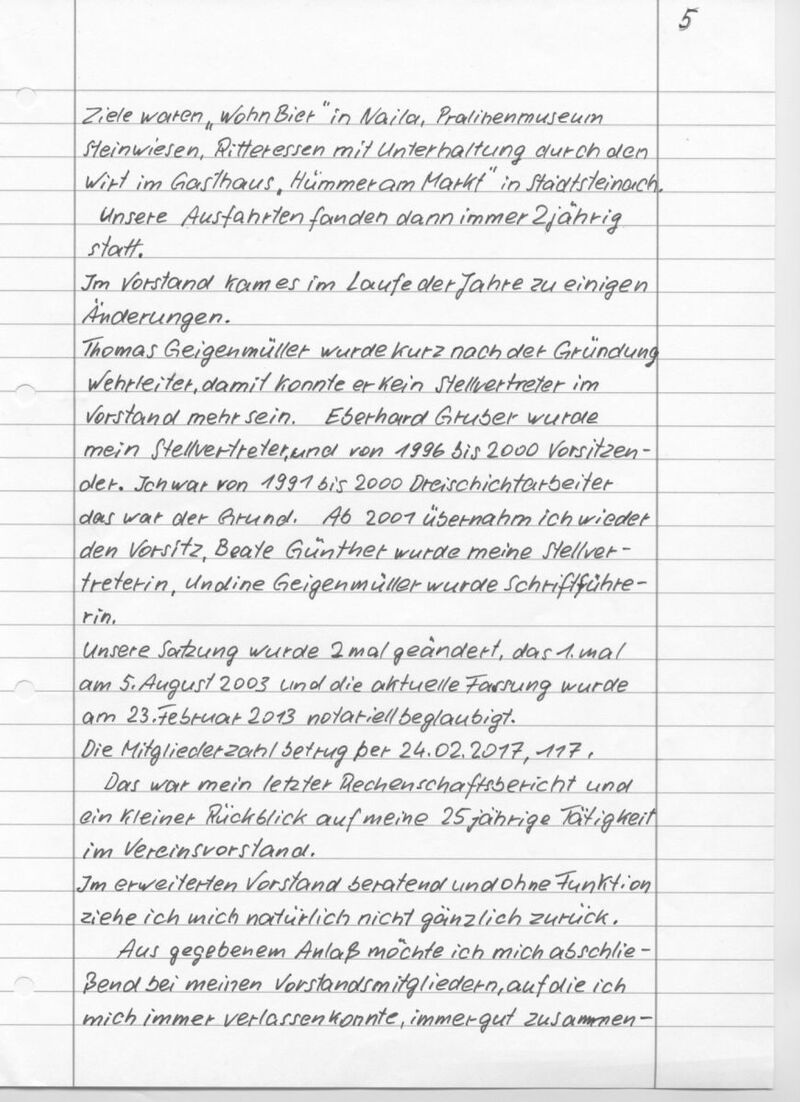 5
Ziele waren „WohnBier" in Naila, Pralinenmuseum
Steinwiesen, Ritteressen mit Unterhaltung durch den
Wirt im Gasthaus „Hümmer am Markt" in Stadtsteinach.
Unsere Ausfahrten fanden dann immer 2jährig
statt.
Im Vorstand kam es im Laufe der Jahre zu einigen
Änderungen.
Thomas Geigenmüller wurde kurz nach der Gründung
Wehrleiter, damit konnte er kein Stellvertreter im
Vorstand mehr sein. Eberhard Gruber wurde
mein Stellvertreter, und von 1996 bis 2000 Vorsitzen-
der. Ich war von 1991 bis 2000 Dreischichtarbeiter
das war der Grund. Ab 2001 übernahm ich wieder
den Vorsitz, Beate Günther wurde meine Stellver-
treterin, Undine Geigenmüller wurde Schriftführe-
rin.
Unsere Satzung wurde 2 mal geändert, das 1. mal
am 5. August 2003 und die aktuelle Fassung wurde
am 23. Februar 2013 notariell beglaubigt.
Die Mitgliederzahl betrug per 24.02.2017, 117.
Das war mein letzter Rechenschaftsbericht und
ein kleiner Rückblick auf meine 25jährige Tätigkeit
im Vereinsvorstand.
Im erweiterten Vorstand beratend und ohne Funktion
ziehe ich mich natürlich nicht gänzlich zurück.
Aus gegebenem Anlaß möchte ich mich abschlie-
ßend bei meinen Vorstandsmitgliedern, auf die ich
mich immer verlassen konnte, immer gut zusammen-